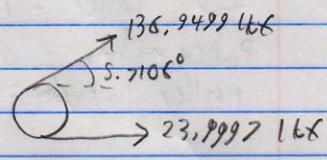 136.9499 lbf
5.7106°
23.9997 lbf